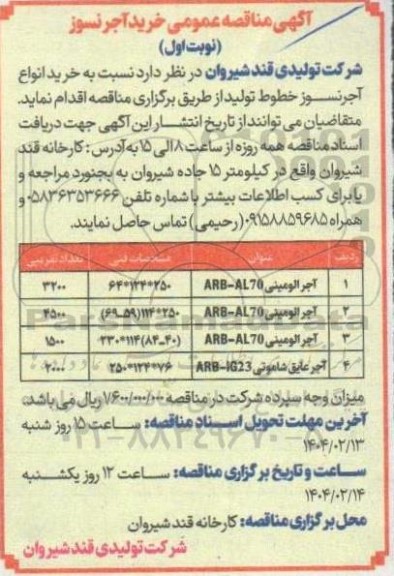 آگهی مناقصه عمومی خرید آجر نسوز
(نوبت اول)
شرکت تولیدی قند شیروان در نظر دارد نسبت به خرید انواع
آجر نسوز خطوط تولید از طریق برگزاری مناقصه اقدام نماید.
متقاضیان می توانند از تاریخ انتشار این آگهی جهت دریافت
اسناد مناقصه همه روزه از ساعت ۸ الی ۱۵ به آدرس: کارخانه قند
شیروان واقع در کیلومتر ۱۵ جاده شیروان به بجنورد مراجعه و
یا برای کسب اطلاعات بیشتر با شماره تلفن ۰۵۸۳۶۳۵۳۶۶۶ و
همراه ۰۹۱۵۸۸۵۹۶۸۵ (رحیمی) تماس حاصل نمایند.
ردیف عنوان مشخصات فنی تعداد تقریبی
۱ آجر الومینی ARB-AL70 ۲۵۰*۱۲۴*۶۴ ۳۲۰۰
۲ آجر الومینی ARB-AL70 ۲۵۰*۱۱۴*(۵۹_۶۹) ۴۵۰۰
۳ آجر الومینی ARB-AL70 (۴۰_۸۴)*۱۱۴*۲۳۰ ۱۵۰۰
۴ آجر عایق شاموتی ARB-IG23 ۷۶*۱۲۴*۲۵۰ ۲۰۰۰
میزان وجه سپرده شرکت در مناقصه ۷/۶۰۰/۰۰۰/۰۰۰ ریال می باشد.
آخرین مهلت تحویل اسناد مناقصه: ساعت ۱۵ روز شنبه
۱۴۰۴/۰۲/۱۳
ساعت و تاریخ برگزاری مناقصه: ساعت ۱۲ روز یکشنبه
۱۴۰۴/۰۲/۱۴
محل برگزاری مناقصه: کارخانه قند شیروان
شرکت تولیدی قند شیروان
ParsNamadData
۰۲۱-۸۸۳۴۹۶۷۰